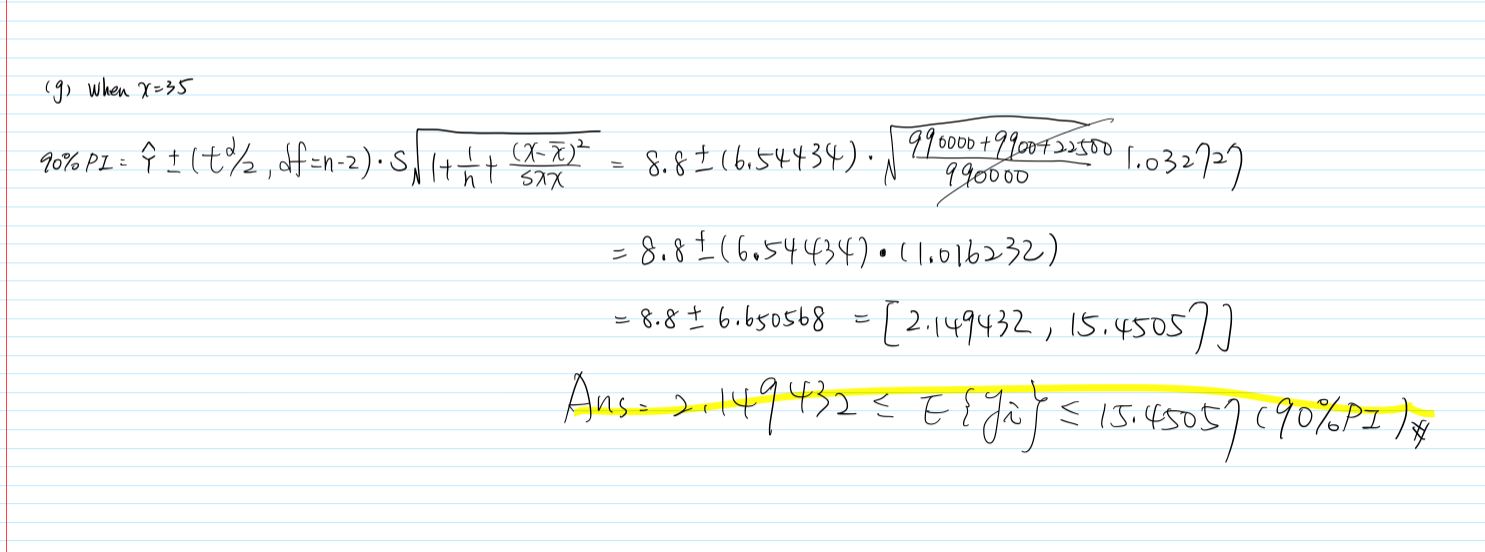 (g) when x=35
90% PI = Ŷ ± (t α/2, df=n-2) · S√(1+1/n+(x-x̄)²/Sxx) = 8.8 ± (6.54434) · √((990000+9900+22500)/990000) 1.032727
= 8.8 ± (6.54434) · (1.016232)
= 8.8 ± 6.650568 = [2.149432, 15.45057]
Ans = 2.149432 ≤ E{yi} ≤ 15.45057 (90% PI)